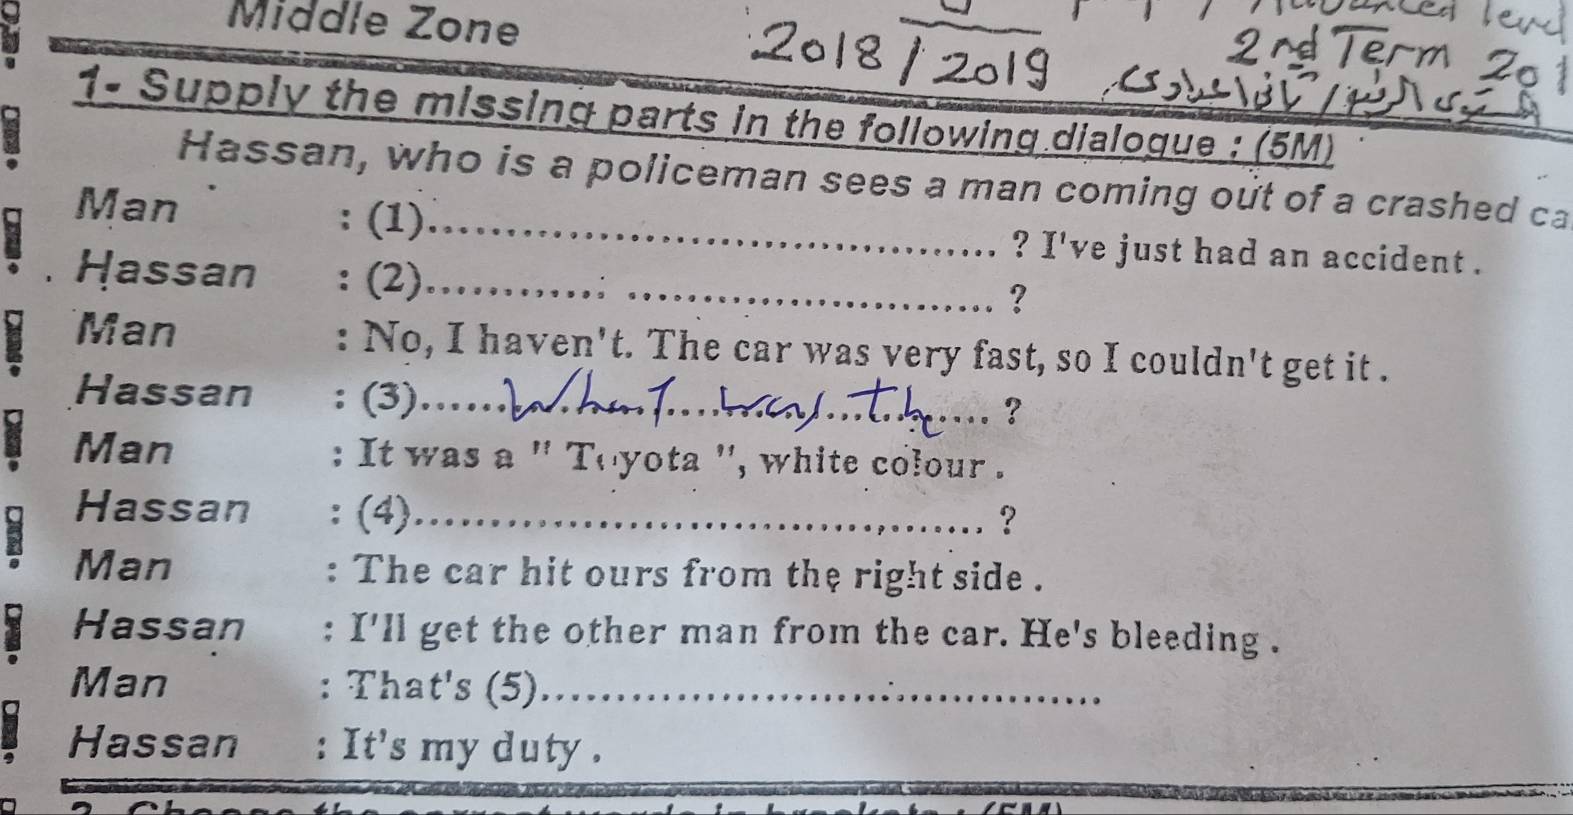 Middle Zone
2018/2019
Advanced level
2nd Term 201
1- Supply the missing parts in the following dialogue : (5M)
Hassan, who is a policeman sees a man coming out of a crashed ca
Man : (1)....................................... ? I've just had an accident .
Hassan : (2)............. ......................... ?
Man : No, I haven't. The car was very fast, so I couldn't get it .
Hassan : (3)......What....was...the.... ?
Man : It was a " Toyota ", white colour .
Hassan : (4)....................................... ?
Man : The car hit ours from the right side .
Hassan : I'll get the other man from the car. He's bleeding .
Man : That's (5).......................................
Hassan : It's my duty .